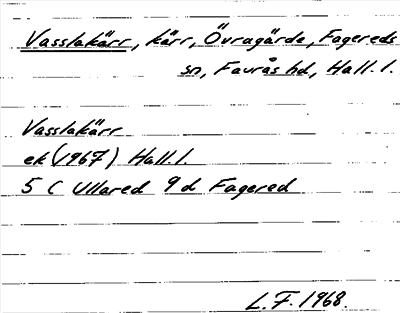 Vasslakärr, kärr, Övragärde, Fagereds
sn, Faurås hd, Hall. l.
Vasslakärr
ek (1967) Hall. l.
5 C Ullared 9 d Fagered
L. F. 1968.